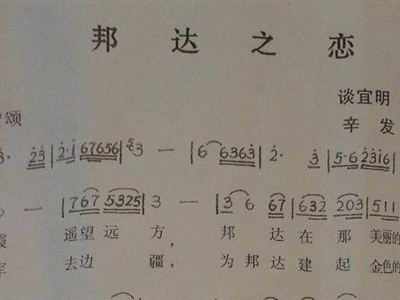 邦达之恋
谈宜明
颂 辛发
3· 23 | 2·1 67656 | 3 — | 6 6363 | 2· 3 | 5·6 2316 |
— | 767 5325 | 3 — | 3 67 67 | 632 203 | 511
霞 遥望远方, 邦达在那美丽的
军 去边疆, 为邦达建起金色的